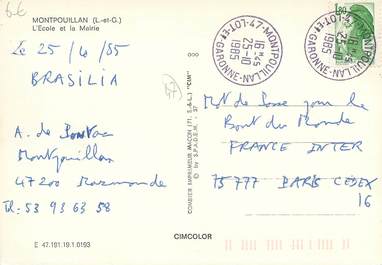 6€
MONTPOUILLAN (L.-et-G.)
L'Ecole et la Mairie
Le 25/4/85
BRASILIA
A. de
Montpouillan
47200 Marmande
Tel: 53 93 63 58
E 47.191.19.1.0193
COMBIER IMPRIMEUR MACON (71. S.-&-L.) "CIM"
by S.P.A.D.E.M.
CIMCOLOR
47
MONTPOUILLAN
LOT-ET-GARONNE
47
16 H 45
25-10
1985
MONTPOUILLAN
LOT-ET-GARONNE
47
16 H 45
25-10
1985
1,80
Mot de Passe pour le
Bout du Monde
FRANCE INTER
75777 PARIS CEDEX
16